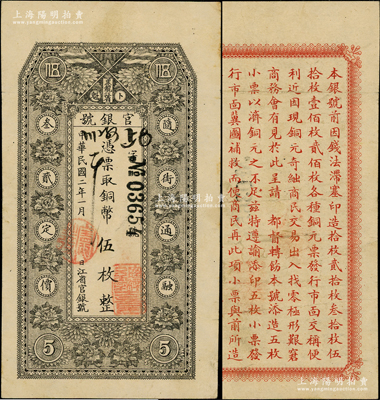 上海陽明拍賣
官銀號
憑票取銅幣
伍枚整
中華民國二年十一月
日江省官銀號
№ 03654
隨街市通融
叁貳定價
伍
伍
5
5
本銀號前因錢法滯塞印造拾枚貳拾枚叁拾枚伍
拾枚壹佰枚貳佰枚各種銅元票發行市面交稱便
利近因現銅元奇絀商民交易出入找零極形艱窘
商務會有見於此呈請都督轉飭本號添造五枚
小票以濟銅元之不足茲特遵諭添印五枚小票發
行市面冀圖補救而便商民再此項小票與前所造